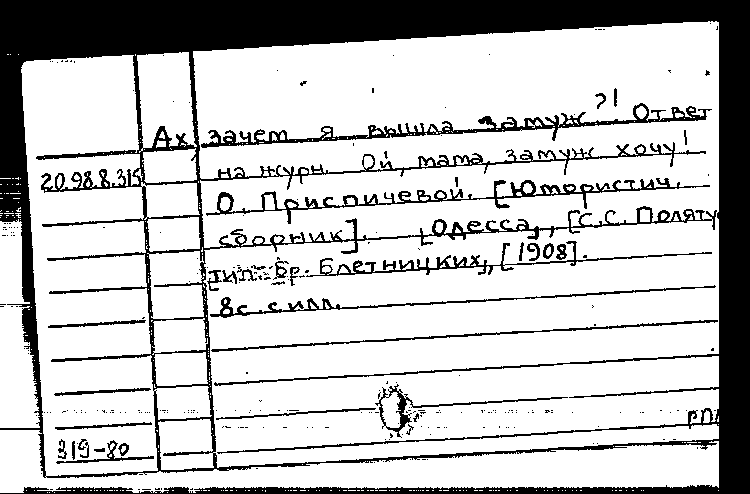 Ах зачем я вышла замуж?! Ответ
на журн. Ой, мама, замуж хочу!
20.98.8.315
О. Приспичевой. [Юмористич.
сборник]. [Одесса], [С.С. Поляту
тип. Бр. Блетницких], [1908].
8с. с илл.
РПБ
319-80